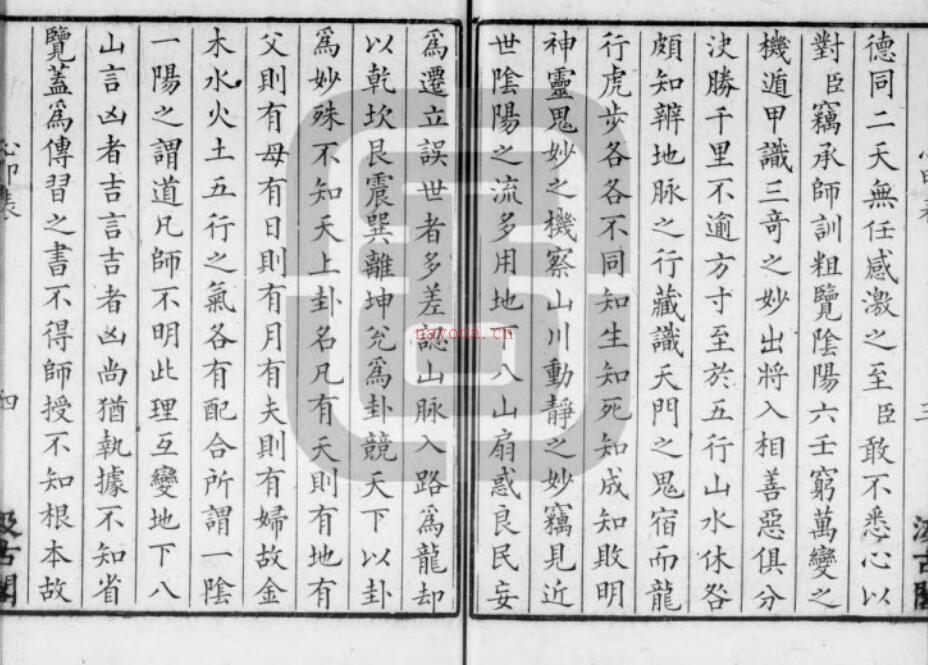 德同二天無任感激之至臣敢不悉心以
對臣竊承師訓粗覽陰陽六壬窮萬變之
機遁甲識三奇之妙出將入相善惡俱分
決勝千里不逾方寸至於五行山水休咎
頗知辨地脉之行藏識天門之鬼宿而龍
行虎步各各不同知生知死知成知敗明
神靈鬼妙之機察山川動靜之妙竊見近
世陰陽之流多用地下八山扇惑良民妄
三
汲古閣
為遷立誤世者多差認山脉入路為龍却
以乾坎艮震巽離坤兊為卦競天下以卦
為妙殊不知天上卦名凡有天則有地有
父則有母有日則有月有夫則有婦故金
木水火土五行之氣各有配合所謂一陰
一陽之謂道凡師不明此理互變地下八
山言凶者吉言吉者凶尚猶執據不知省
覽蓋為傳習之書不得師授不知根本故
四
汲古閣
nayona.cn